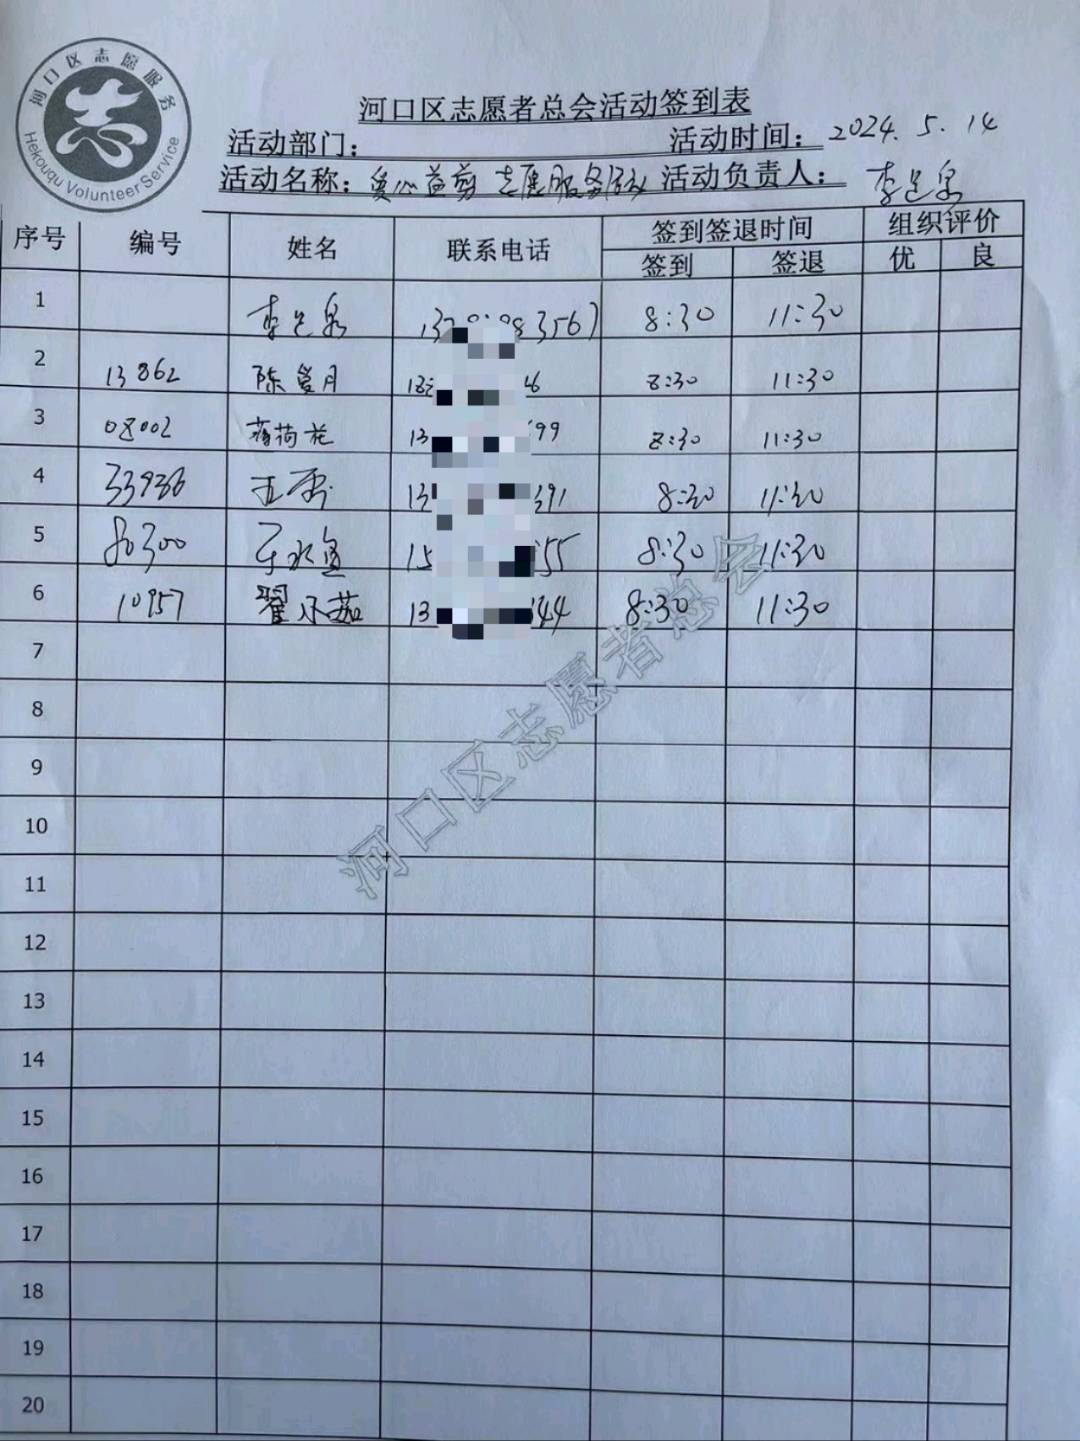 河口区志愿服务
Hekouqu Volunteer Service
河口区志愿者总会活动签到表
活动部门： 活动时间：2024.5.14
活动名称：爱心益剪 志愿服务活动 活动负责人：
序号 编号 姓名 联系电话 签到签退时间 组织评价
签到 签退 优 良
1 8:30 11:30
2 13862 陈 月 8:30 11:30
3 08002 薄荷花 13 99 8:30 11:30
4 33936 13 391 8:30 11:30
5 80300 15 55 8:30 11:30
6 10957 翟 茹 13 44 8:30 11:30
7
8
9
10
11
12
13
14
15
16
17
18
19
20
河口区志愿者总会